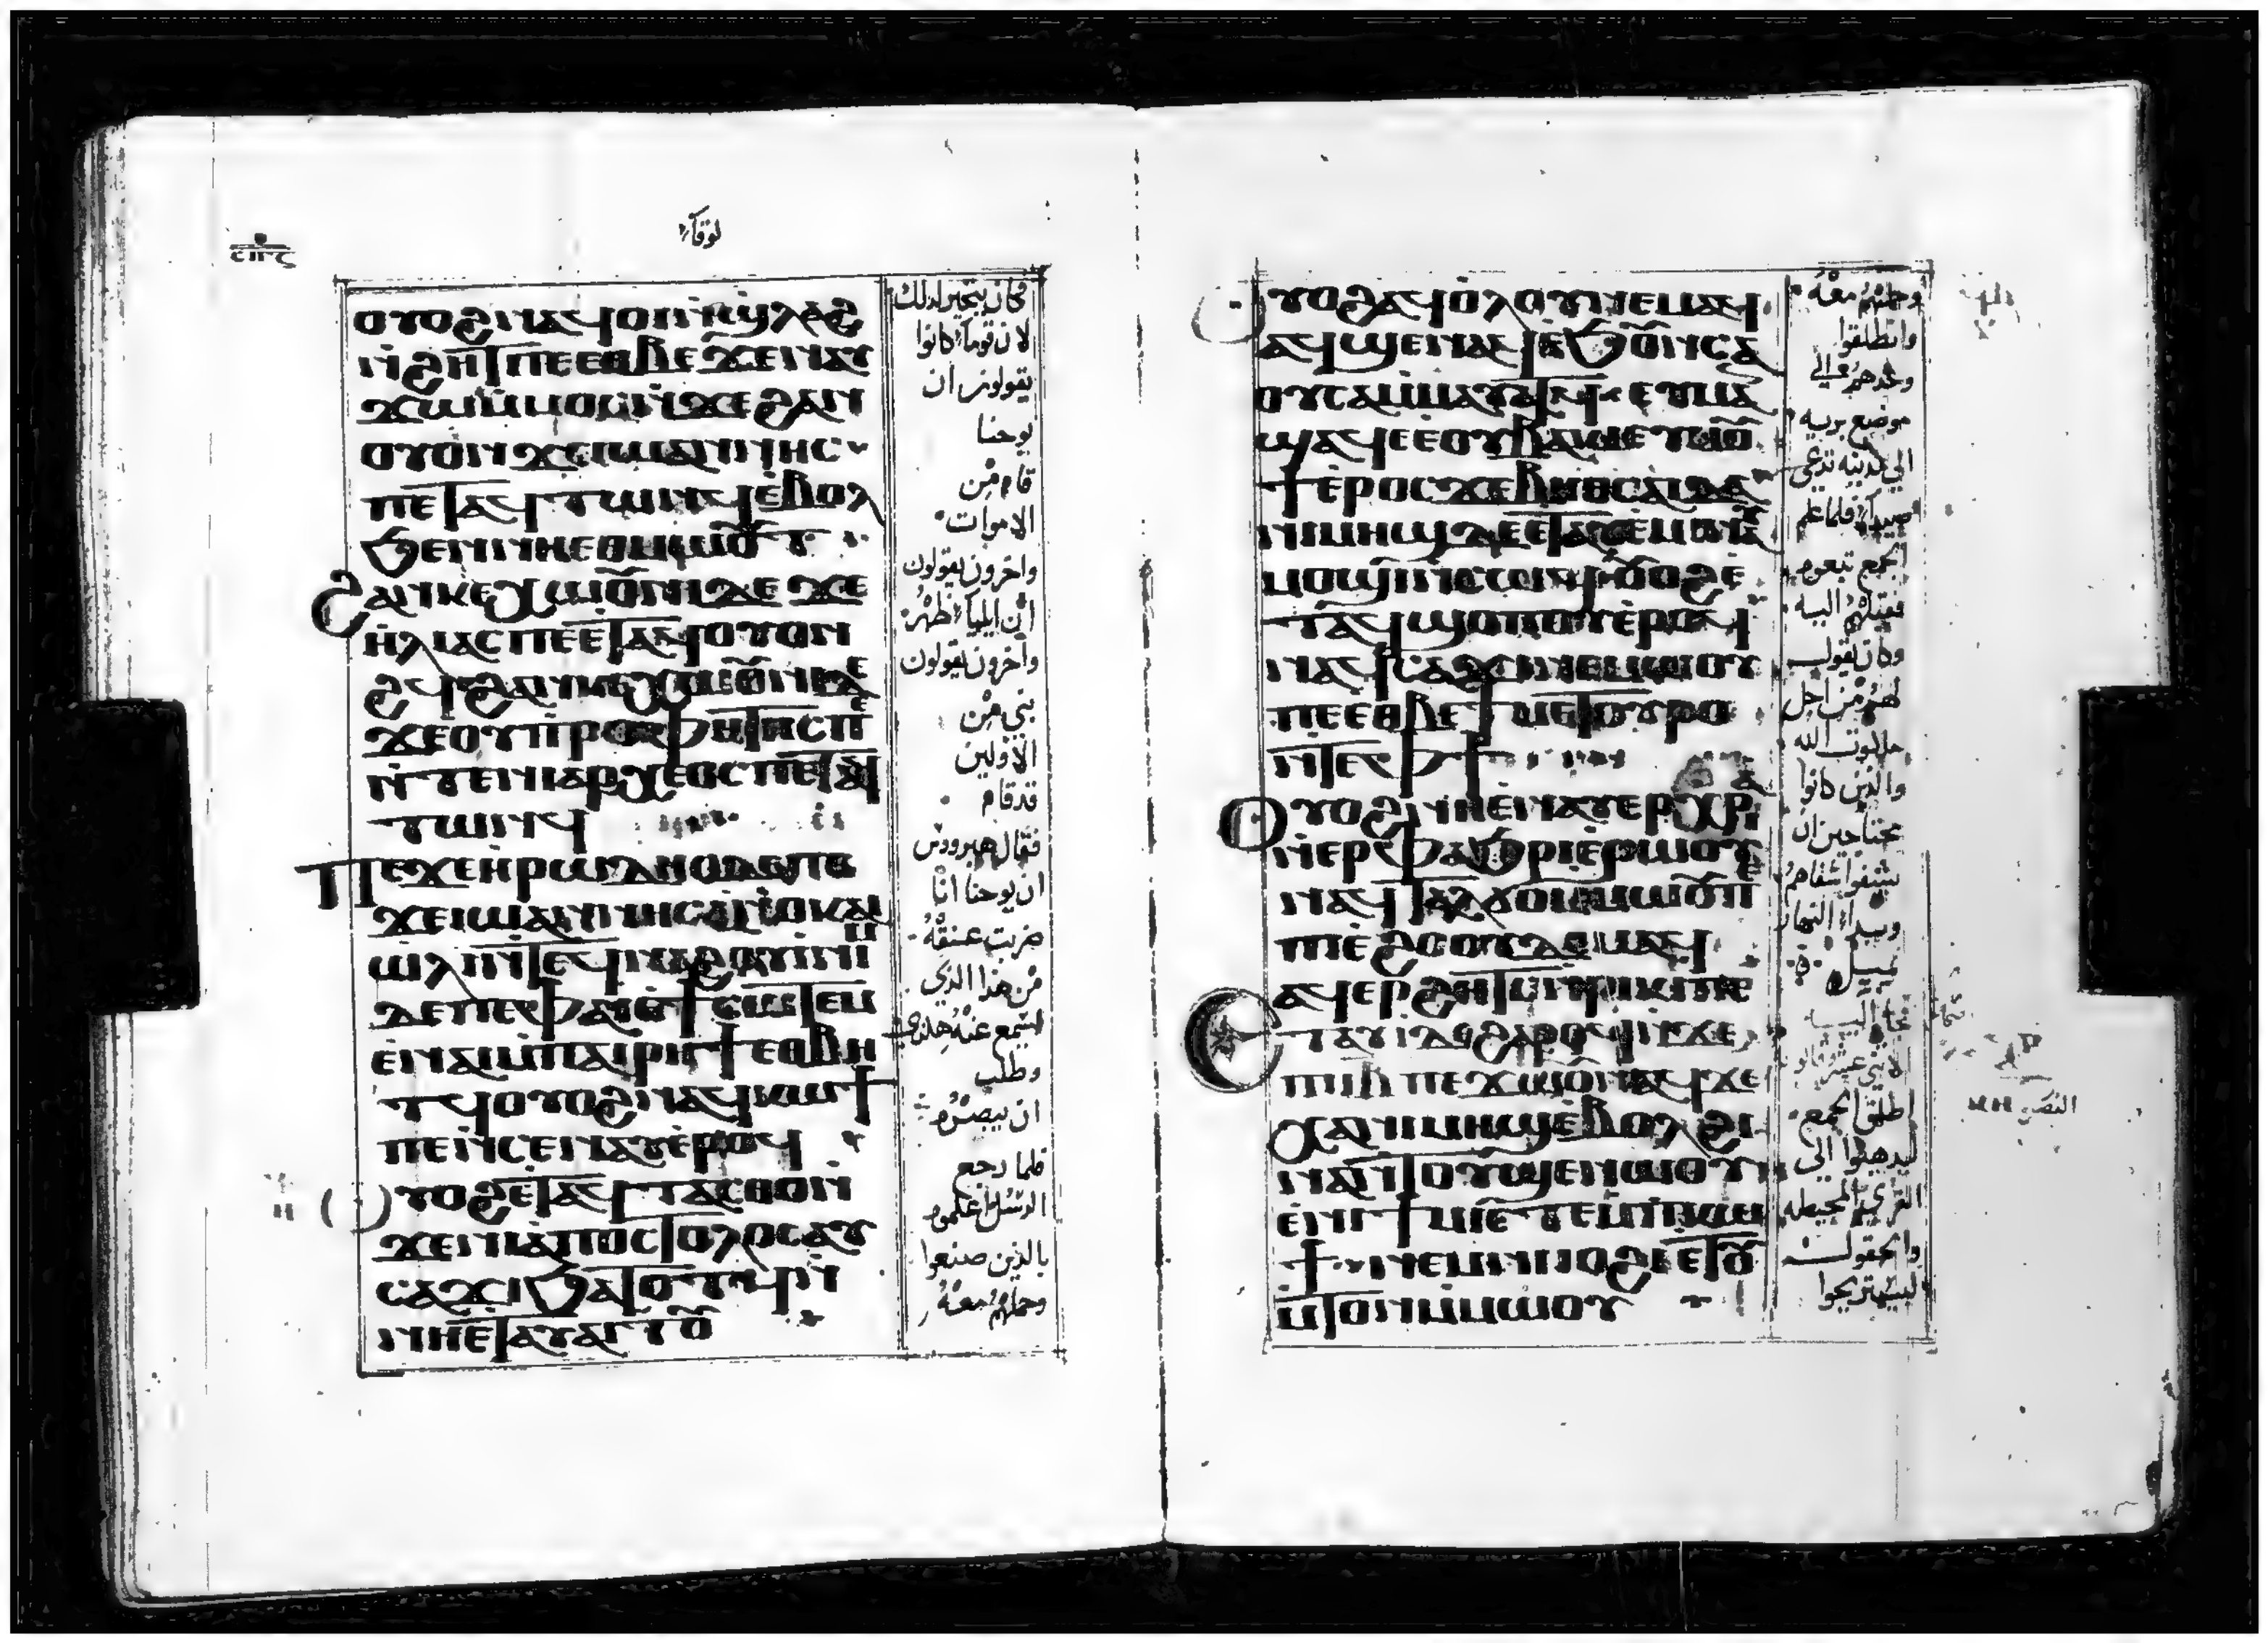 ⲥⲡⲋ
لوقا
ⲟⲩⲟϩⲛⲁϥⲟⲓⲛϣⲗⲁϩ
ⲛϩⲏⲧⲡⲉⲉⲑⲃⲉϫⲉⲛⲁⲩ
ϫⲱⲙⲙⲟⲥⲛϫⲉϩⲁⲛ
ⲟⲩⲟⲛϫⲉⲓⲱⲁⲛⲛⲏⲥ
ⲡⲉⲧⲁϥⲧⲱⲛϥⲉⲃⲟⲗ
ϧⲉⲛⲛⲏⲉⲑⲙⲱⲟⲩⲧ
ϩⲁⲛⲕⲉⲭⲱⲟⲩⲛⲓⲇⲉϫⲉ
ⲏⲗⲓⲁⲥⲡⲉⲉⲧⲁϥⲟⲩⲟⲛ
ϩϥϩⲁⲛⲕⲉⲭⲱⲟⲩⲛⲓⲇⲉ
ϫⲉⲟⲩⲡⲣⲟⲫⲏⲧⲏⲥⲡⲉ
ⲛⲧⲉⲛⲓⲁⲣⲭⲉⲟⲥⲡⲉⲧⲁϥ
ⲧⲱⲛϥ
ⲡⲉϫⲉⲏⲣⲱⲇⲏⲥⲇⲉ
ϫⲉⲓⲱⲁⲛⲛⲏⲥⲁⲛⲟⲕⲁⲓ
ⲱⲗⲓⲛⲧⲉϥⲛⲁϩⲃⲓⲛⲓⲙ
ⲇⲉⲡⲉⲫⲁⲓⲉϯⲥⲱⲧⲉⲙ
ⲉⲛⲁⲓⲙⲡⲁⲓⲣⲏϯⲉⲑⲃⲏ
ⲧϥⲟⲩⲟϩⲛⲁϥⲕⲱϯ
ⲡⲉⲛⲥⲉⲛⲁⲩⲉⲣⲟϥ
ⲟⲩⲟϩⲉⲧⲁⲩⲧⲁⲥⲑⲟⲛ
ϫⲉⲛⲓⲁⲡⲟⲥⲧⲟⲗⲟⲥⲁⲩ
ⲥⲁϫⲓϧⲁⲧⲟⲧϥⲛ
ⲛⲏⲉⲧⲁⲩⲁⲓⲧⲟⲩ
فكان يتحير لذلك
لان قوما كانوا
يقولون ان
يوحنا
قام من
الاموات
واخرون يقولون
ان ايليا ظهر
واخرون يقولون
نبي من
الاولين
قد قام
فقال هيرودس
ان يوحنا انا
ضربت عنقه
من هذا الذي
اسمع عنه هكذا
وطلب
ان يبصره
فلما رجع
الرسل اعلموه
بالذين صنعوا
وحملهم معه
ⲟⲩⲟϩⲁϥⲟⲗⲟⲩⲛⲉⲙⲁϥ
ⲁϥϣⲉⲛⲁϥⲥⲁⲟⲩⲥⲁ
ⲟⲩⲥⲁⲙⲙⲁⲩⲁⲧϥⲉⲩⲙⲁ
ⲛϣⲁϥⲉⲉⲟⲩⲃⲁⲕⲓⲉⲩⲙⲟⲩ
ϯⲉⲣⲟⲥϫⲉⲃⲏⲑⲥⲁⲓⲇⲁ
ⲛⲓⲙⲏϣⲇⲉⲉⲧⲁⲩⲉⲙⲓⲁⲩ
ⲙⲟϣⲓⲛⲥⲱϥⲟⲩⲟϩⲉ
ⲧⲁϥϣⲟⲡⲟⲩⲉⲣⲟϥ
ⲛⲁϥⲥⲁϫⲓⲛⲉⲙⲱⲟⲩ
ⲡⲉⲉⲑⲃⲉϯⲙⲉⲧⲟⲩⲣⲟ
ⲛⲧⲉⲫϯ
ⲟⲩⲟϩⲛⲏⲉⲛⲁⲩⲉⲣⲭⲣⲓⲁ
ⲛⲉⲣⲫⲁϧⲣⲓⲉⲣⲱⲟⲩ
ⲛⲁϥⲧⲁⲗϭⲟⲙⲙⲱⲟⲩⲡⲉ
ⲡⲓⲉϩⲟⲟⲩⲇⲉⲛⲁϥ
ⲁϥⲉⲣϩⲏⲧⲥⲛⲣⲓⲕⲓⲡⲉ
ⲉⲧⲁⲩⲓⲇⲉϩⲁⲣⲟϥⲛϫⲉ
ⲡⲓⲓⲃⲡⲉϫⲱⲟⲩⲛⲁϥϫⲉ
ⲭⲁⲡⲓⲙⲏϣⲉⲃⲟⲗϩⲓ
ⲛⲁⲛⲧⲟⲩϣⲉⲛⲱⲟⲩ
ⲉⲛⲓϯⲙⲓⲉⲧⲉⲙⲡⲕⲱ
ϯⲛⲉⲙⲛⲓⲓⲟϩⲓⲛⲧⲟⲩ
ⲙⲧⲟⲛⲙⲙⲱⲟⲩ
وحملهم معه
وانطلقوا
وحدهم الي
موضع بريه
الي مدينه تدعي
صيدا فلما علم
الجمع تبعوه
فقبلهم اليه
وكان يقول
لهم من اجل
ملكوت الله
والذين كانوا
محتاجين ان
يشفوا شفاهم
وبدا النهار
يميل
فجا اليه
الاثني عشر قالوا
اطلق الجمع
ليذهبوا الي
القري المحيطه
والحقول
ليستريحوا